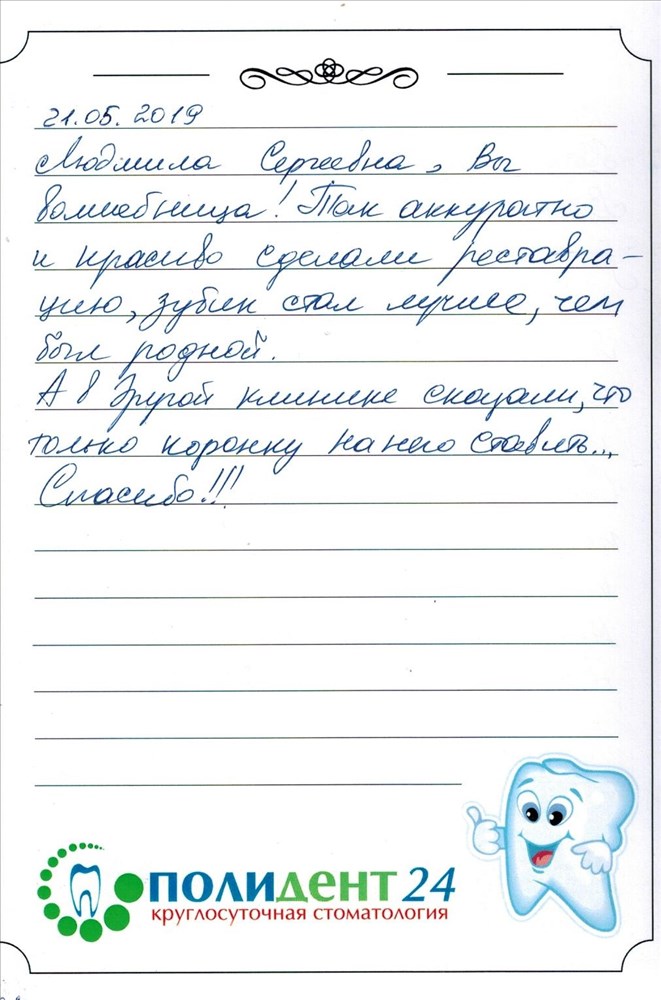 21.05.2019
Людмила Сергеевна, Вы
волшебница! Так аккуратно
и красиво сделали реставра-
цию, зубик стал лучше, чем
был родной.
А в другой клинике сказали, что
только коронку на него ставить...
Спасибо!!!
ПОЛИДЕНТ 24
КРУГЛОСУТОЧНАЯ СТОМАТОЛОГИЯ